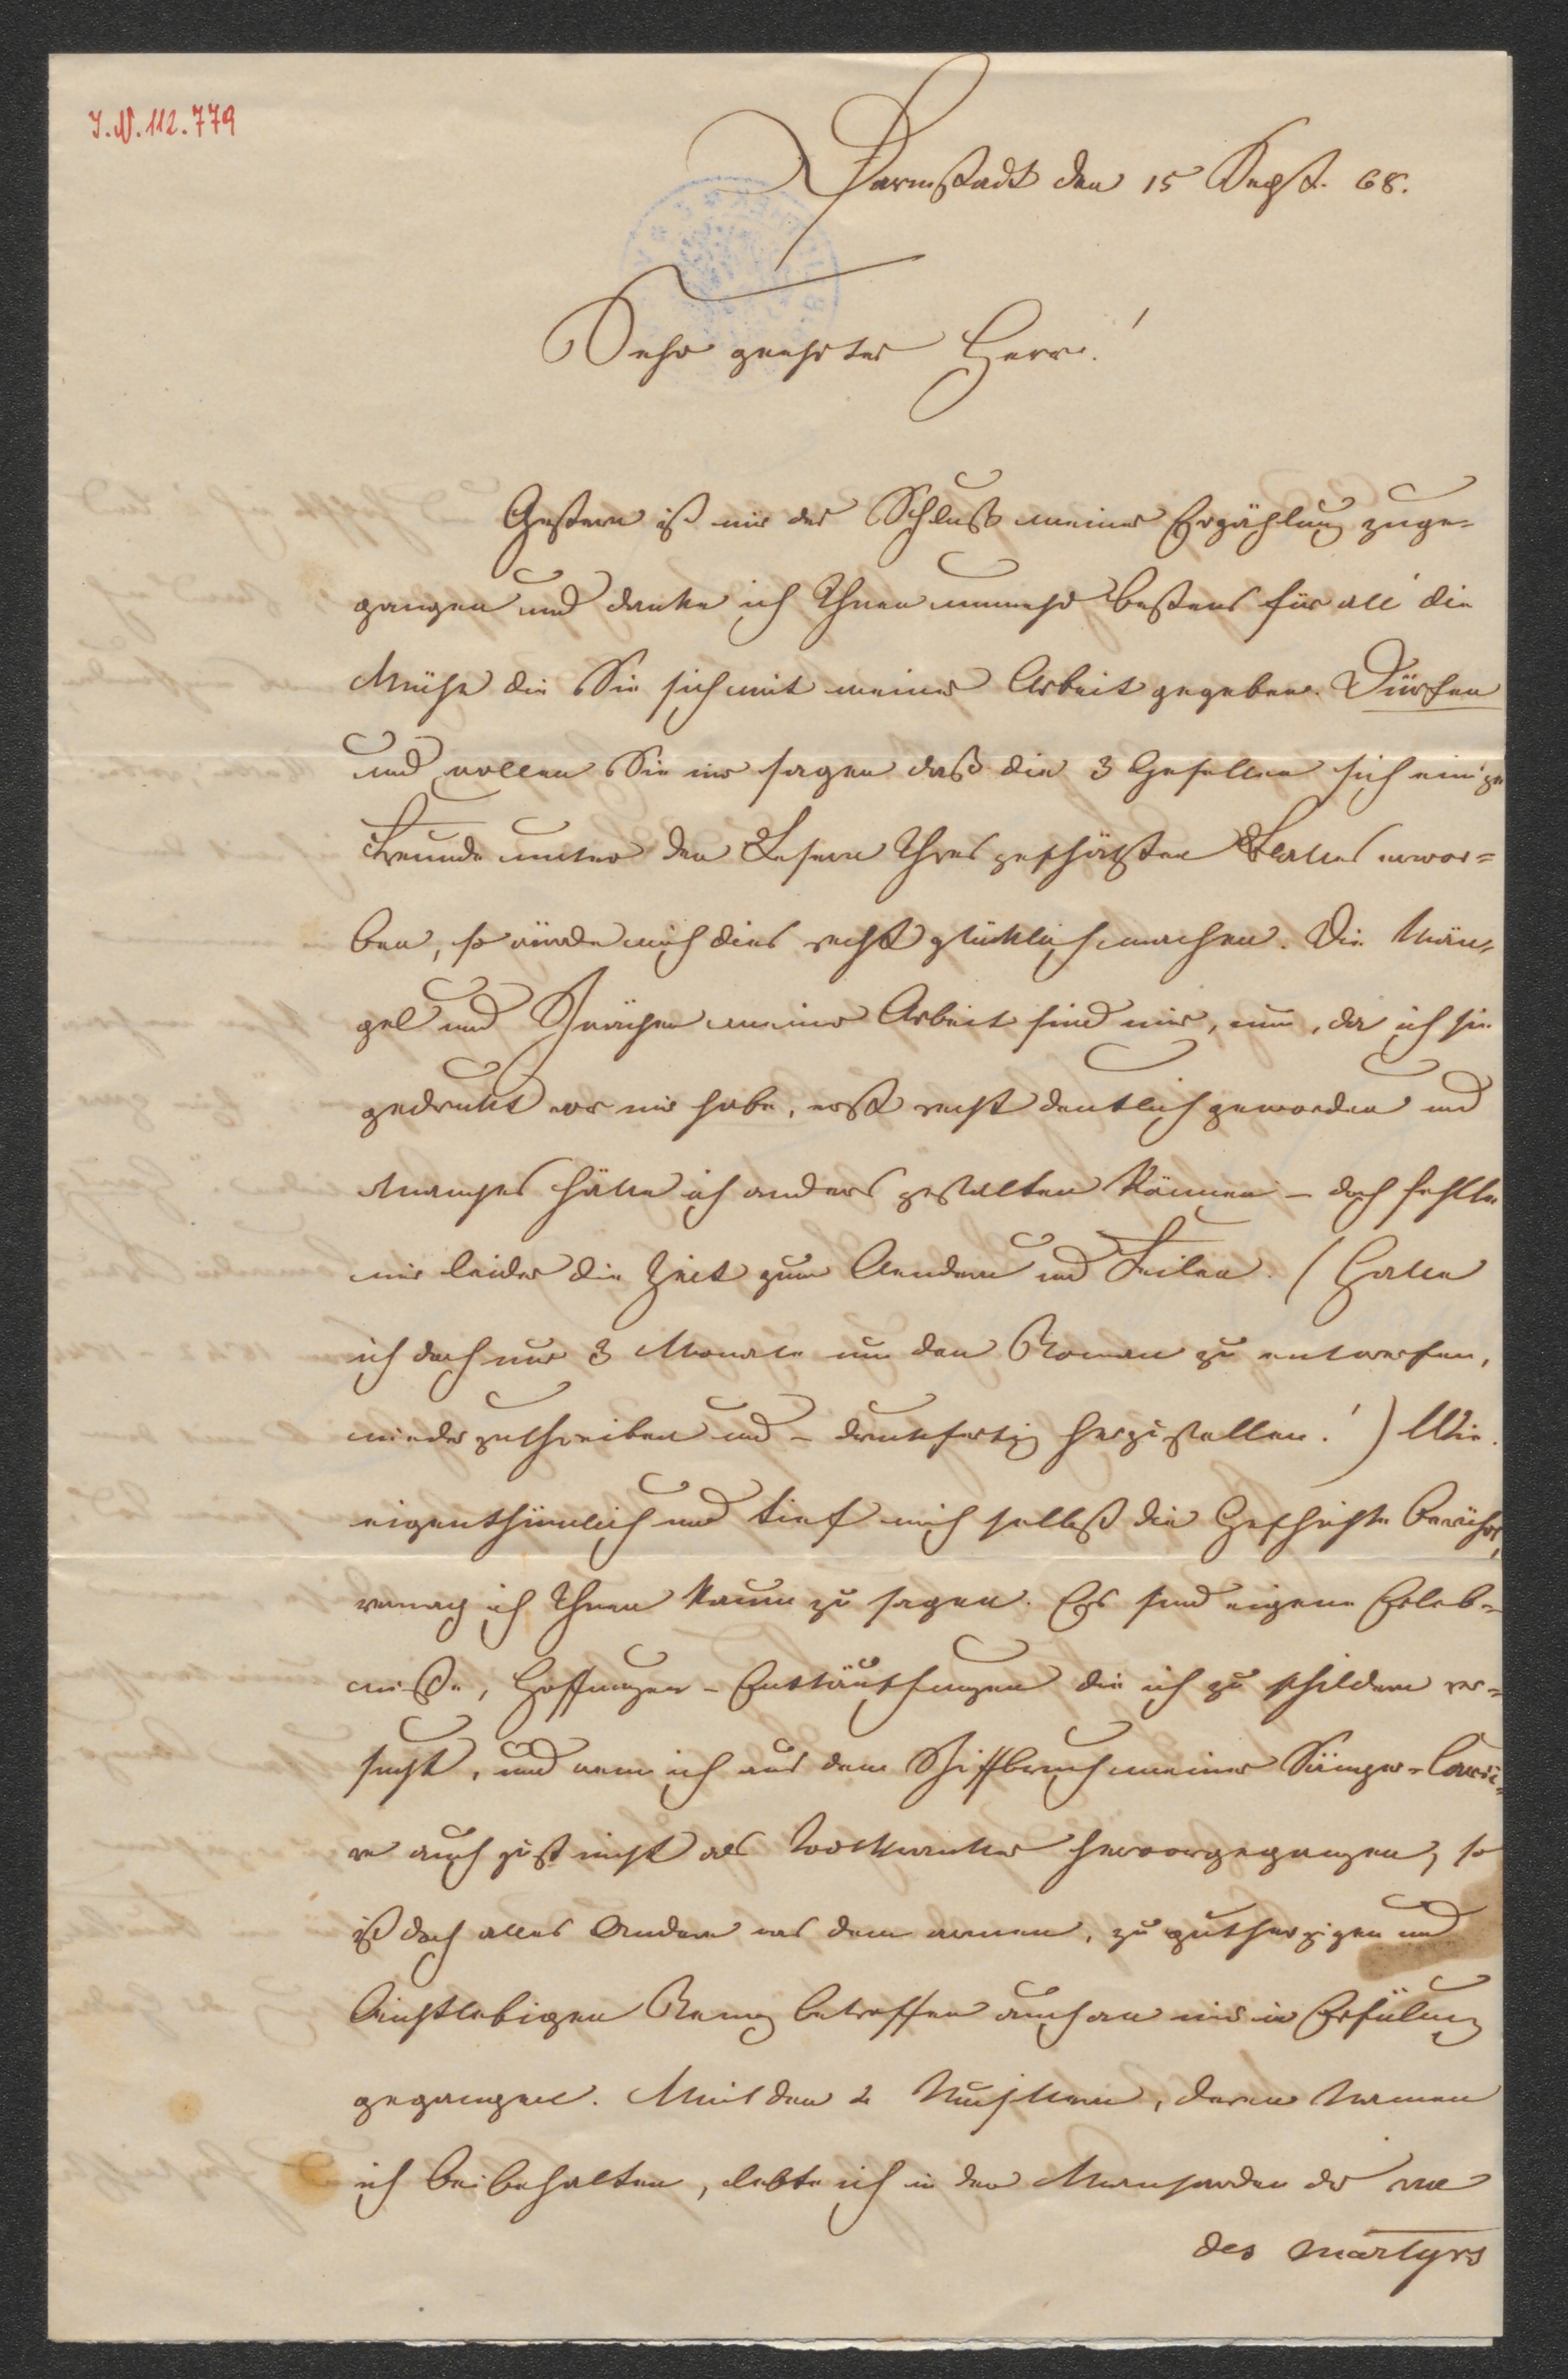 I.N. 112.779
Darmstadt den 15 Sept. 68.
Sehr geehrter Herr!
Gestern ist mir der Schluß meiner Erzählung zuge-
gangen und danke ich Ihnen nunmehr bestens für all' die
Mühe die Sie sich mit meiner Arbeit gegeben. Dürfen
und wollen Sie mir sagen daß die 3 Gesellen sich einige
Freunde unter den Lesern Ihres geschätzten Blattes erwor=
ben, so würde mich dies recht glücklich machen. Die Män-
gel und Schwächen meiner Arbeit sind mir, nun, da ich sie
gedruckt vor mir habe, erst recht deutlich geworden und
Manches hätte ich anders gestalten können – doch fehlte
mir leider die Zeit zum Aendern und Feilen. (Hatte
ich doch nur 3 Monate um den Roman zu entwerfen,
niederzuschreiben und – druckfertig herzustellen!) Wie
eigenthümlich und tief mich selbst die Geschichte berührt,
vermag ich Ihnen kaum zu sagen. Es sind eigene Erleb-
niße, Hoffnungen – Enttäuschungen die ich zu schildern ver=
sucht, und wenn ich aus dem Schiffbruch meiner Sänger-Carriè-
re auch just nicht als hervorgegangen, so
ist doch alles Andere was dem armen, zu gutherzigen und
leichtlebigen Remy betroffen auch an mir in Erfüllung
gegangen. Mit den 2 Musikern, deren Namen
ich beibehalten, lebte ich in den Mansarden der rue
des martyrs